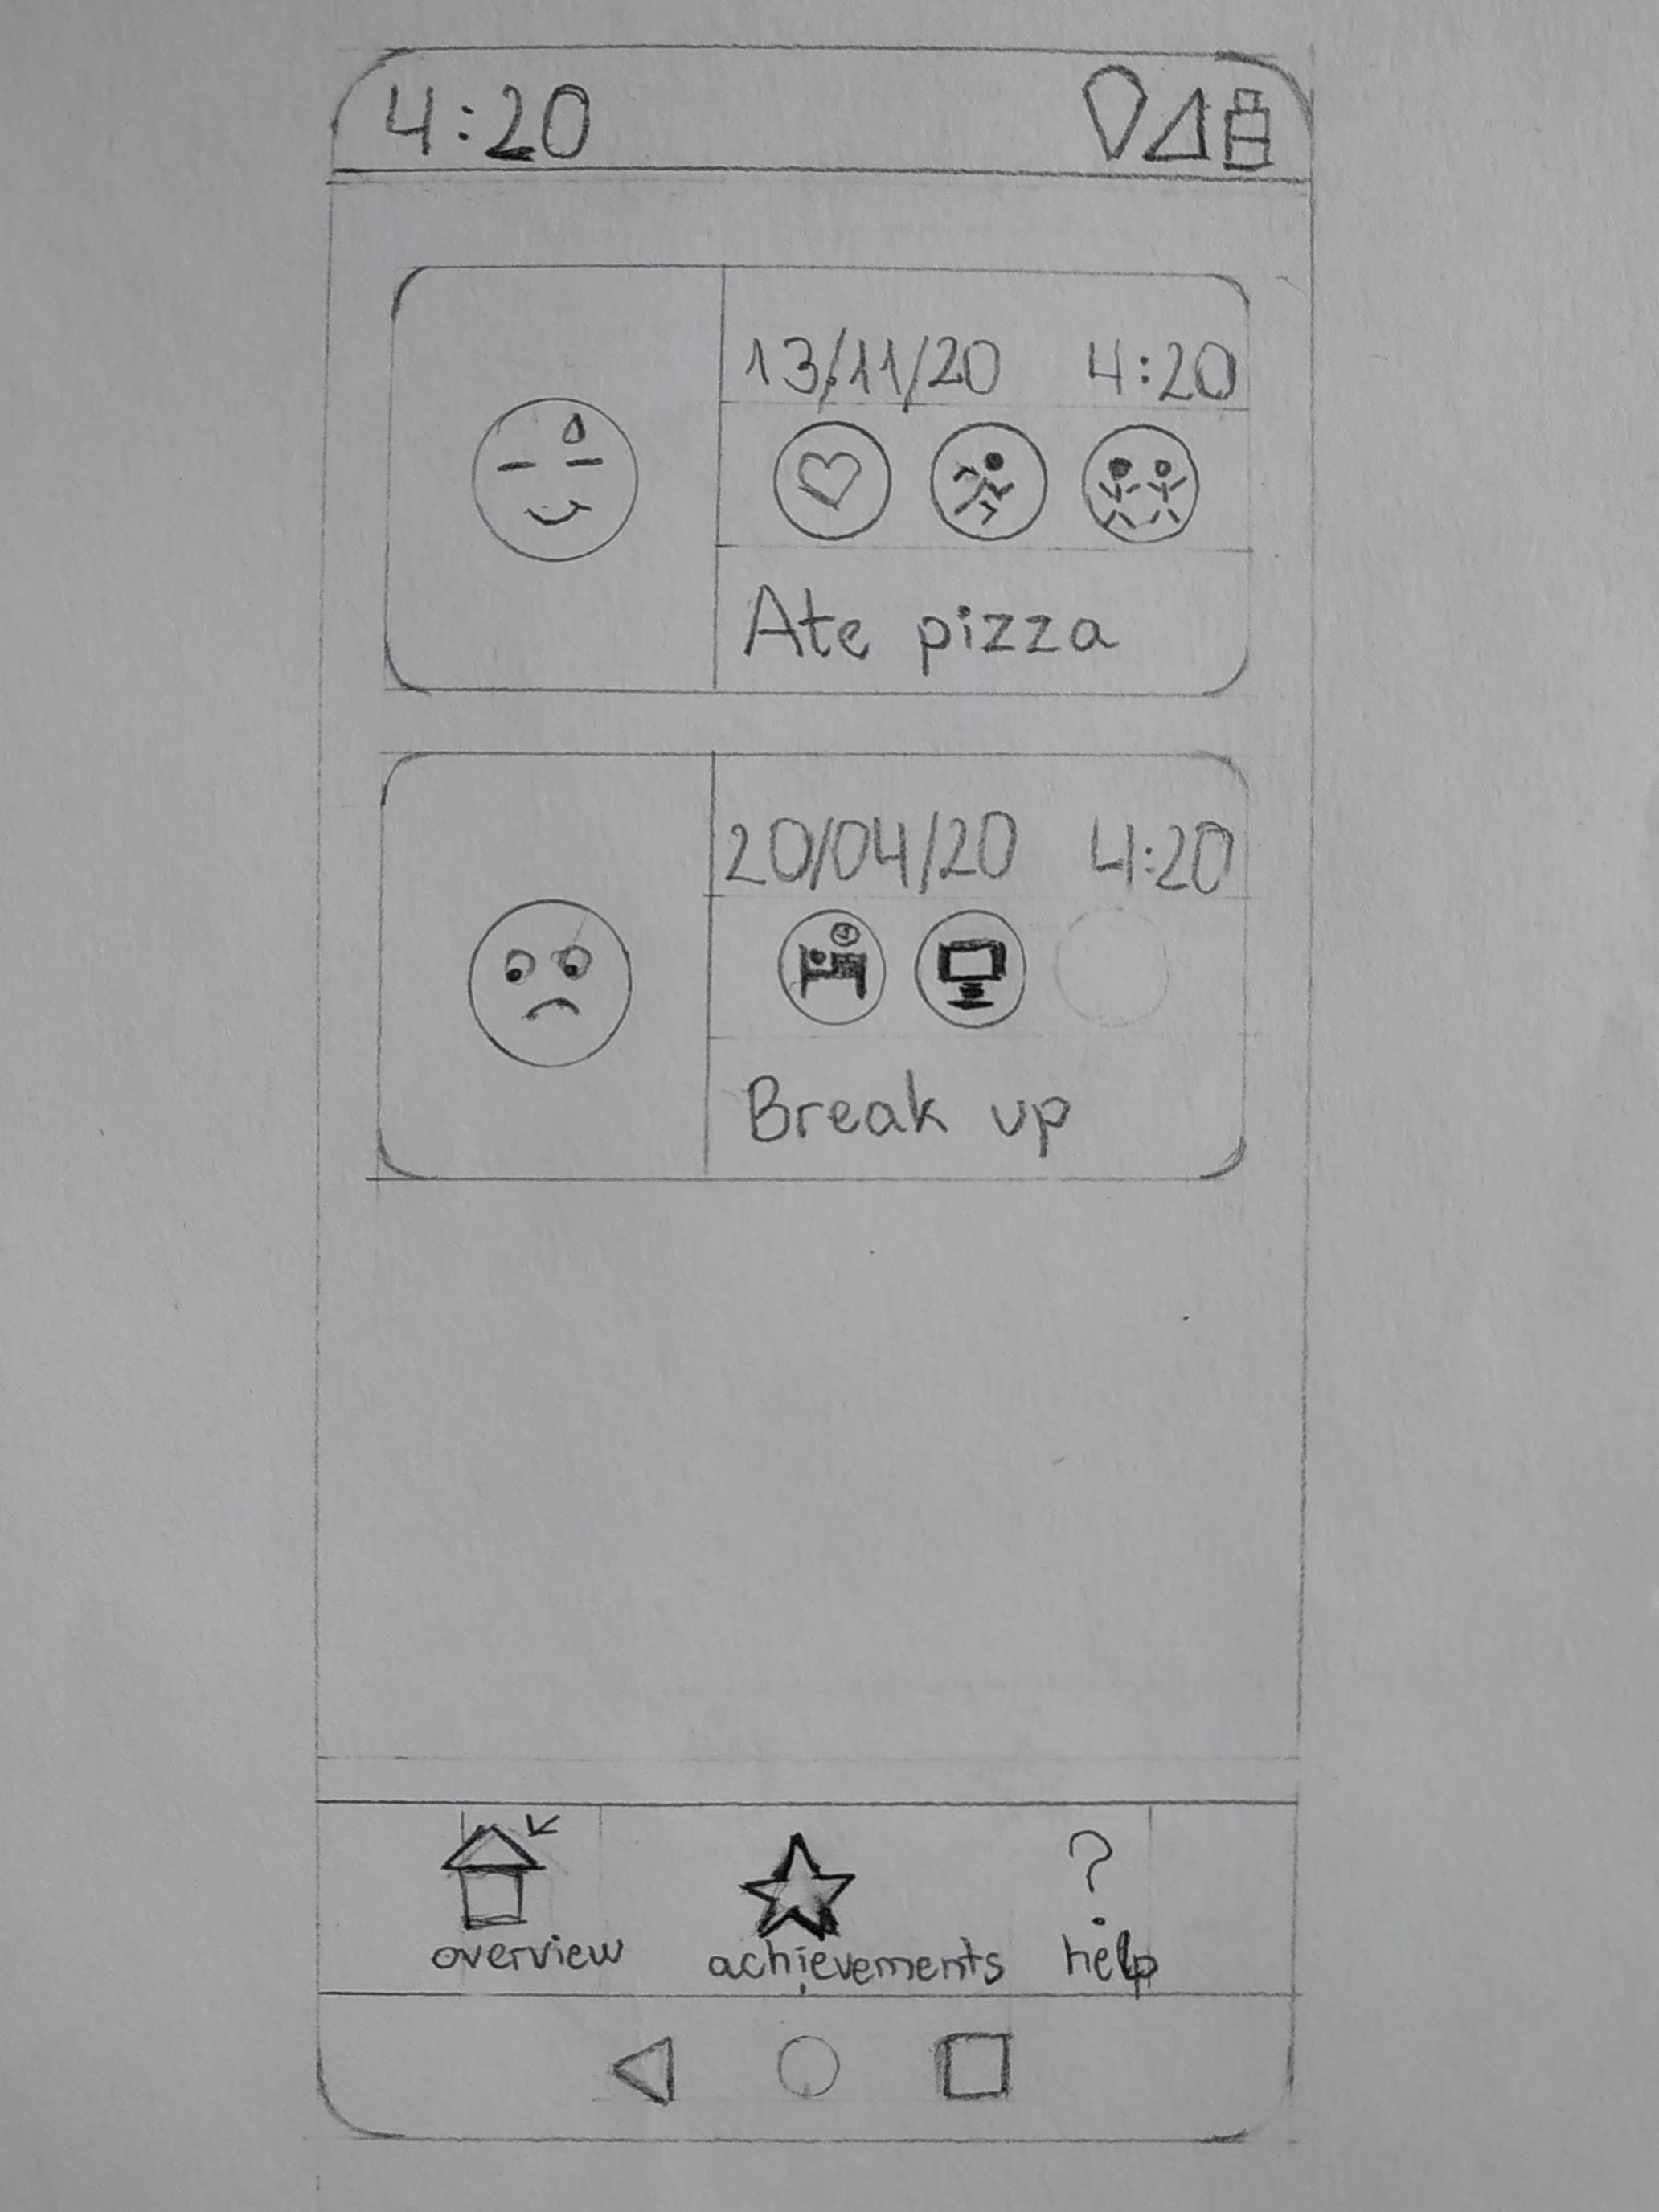 4:20
13/11/20 4:20
Ate pizza
20/04/20 4:20
Break up
?
overview achievements help